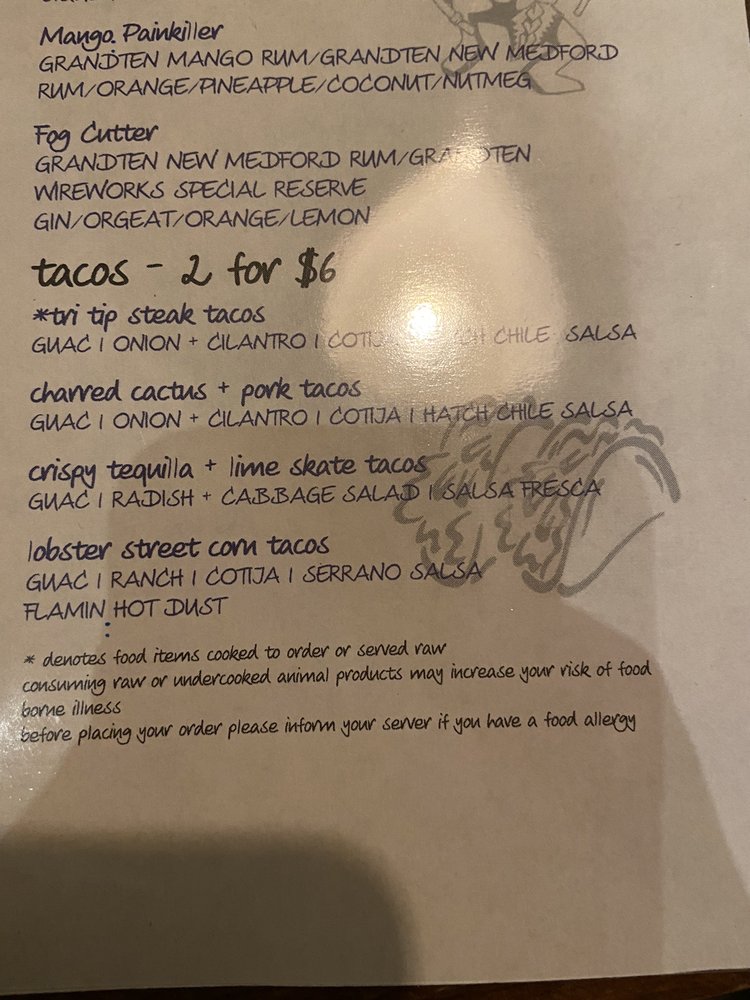 Mango Painkiller
GRANDTEN MANGO RUM/GRANDTEN NEW MEDFORD
RUM/ORANGE/PINEAPPLE/COCONUT/NUTMEG
Fog Cutter
GRANDTEN NEW MEDFORD RUM/GRANDTEN
WIREWORKS SPECIAL RESERVE
GIN/ORGEAT/ORANGE/LEMON
tacos - 2 for $6
*tri tip steak tacos
GUAC | ONION + CILANTRO | COTIJA | HATCH CHILE SALSA
charred cactus + pork tacos
GUAC | ONION + CILANTRO | COTIJA | HATCH CHILE SALSA
crispy tequila + lime skate tacos
GUAC | RADISH + CABBAGE SALAD | SALSA FRESCA
lobster street corn tacos
GUAC | RANCH | COTIJA | SERRANO SALSA
FLAMIN HOT DUST
* denotes food items cooked to order or served raw
consuming raw or undercooked animal products may increase your risk of food
borne illness
before placing your order please inform your server if you have a food allergy